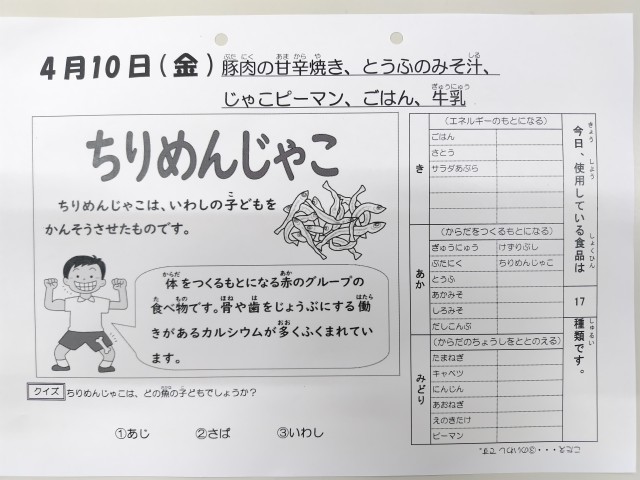 4月10日(金)豚肉の甘辛焼き、とうふのみそ汁、
じゃこピーマン、ごはん、牛乳
ちりめんじゃこ
ちりめんじゃこは、いわしの子どもを
かんそうさせたものです。
体をつくるもとになる赤のグループの
食べ物です。骨や歯をじょうぶにする働
きがあるカルシウムが多くふくまれてい
ます。
クイズ ちりめんじゃこは、どの魚の子どもでしょうか?
①あじ ②さば ③いわし
き
(エネルギーのもとになる)
ごはん
さとう
サラダあぶら
あか
(からだをつくるもとになる)
ぎゅうにゅう けずりぶし
ぶたにく ちりめんじゃこ
とうふ
あかみそ
しろみそ
だしこんぶ
みどり
(からだのちょうしをととのえる)
たまねぎ
キャベツ
にんじん
あおねぎ
えのきたけ
ピーマン
今日、使用している食品は
17
種類です。
こたえ・・・③のいわしです。